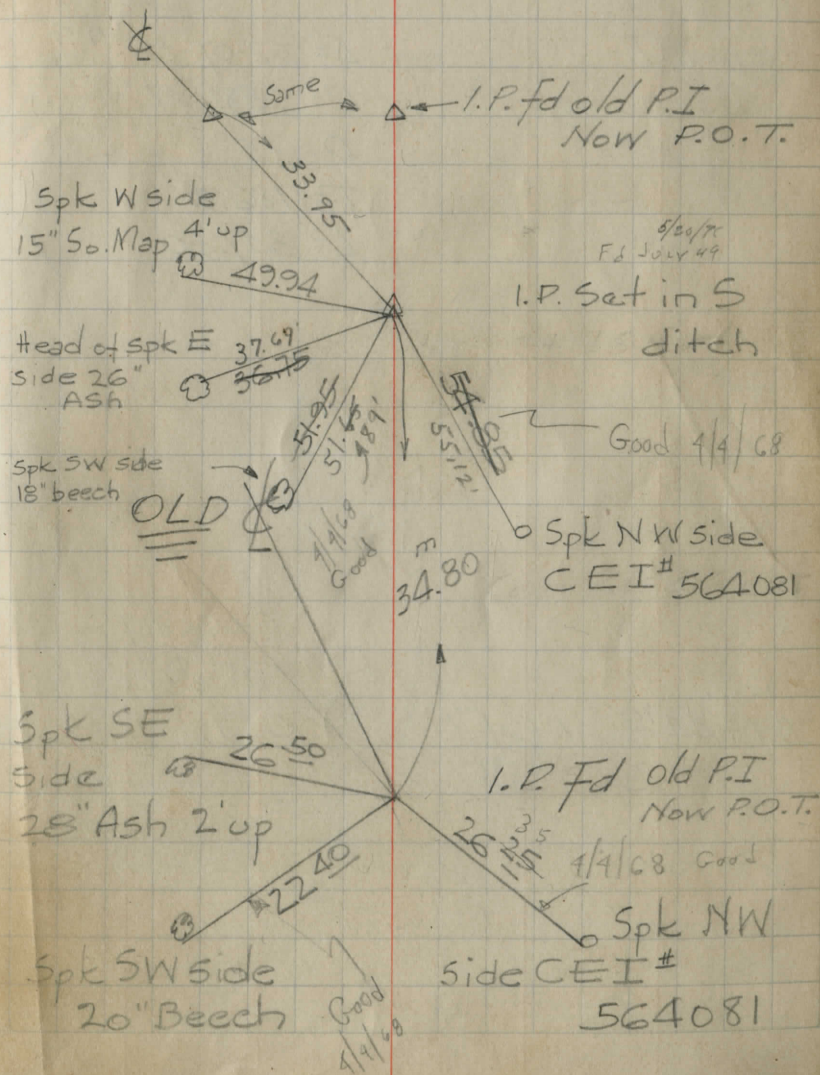 ℄
Same
I.P. Fd old P.I
Now P.O.T.
33.95
Spk W side
15" So. Map 4' up
49.94
Fd July 49
I.P. Set in S
ditch
Head of spk E
side 26"
ASH
37.69'
36.75
51.95
54.85
55.12'
Good 4/4/68
Spk SW side
18" beech
OLD ℄
4/4/68
Good
34.80
Spk NW side
CEI # 564081
Spk SE
side
28" Ash 2' up
26 50
I.P. Fd old P.I
Now P.O.T.
26 25
35
4/4/68 Good
22 40
Spk SW side
20" Beech
Good
4/4/68
Spk NW
side CEI #
564081